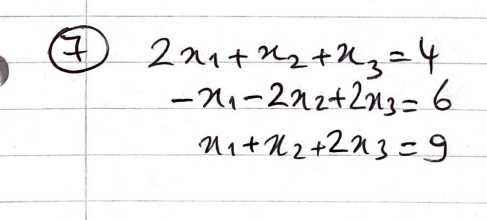 ⑦ 2x₁+x₂+x₃=4
-x₁-2x₂+2x₃=6
x₁+x₂+2x₃=9